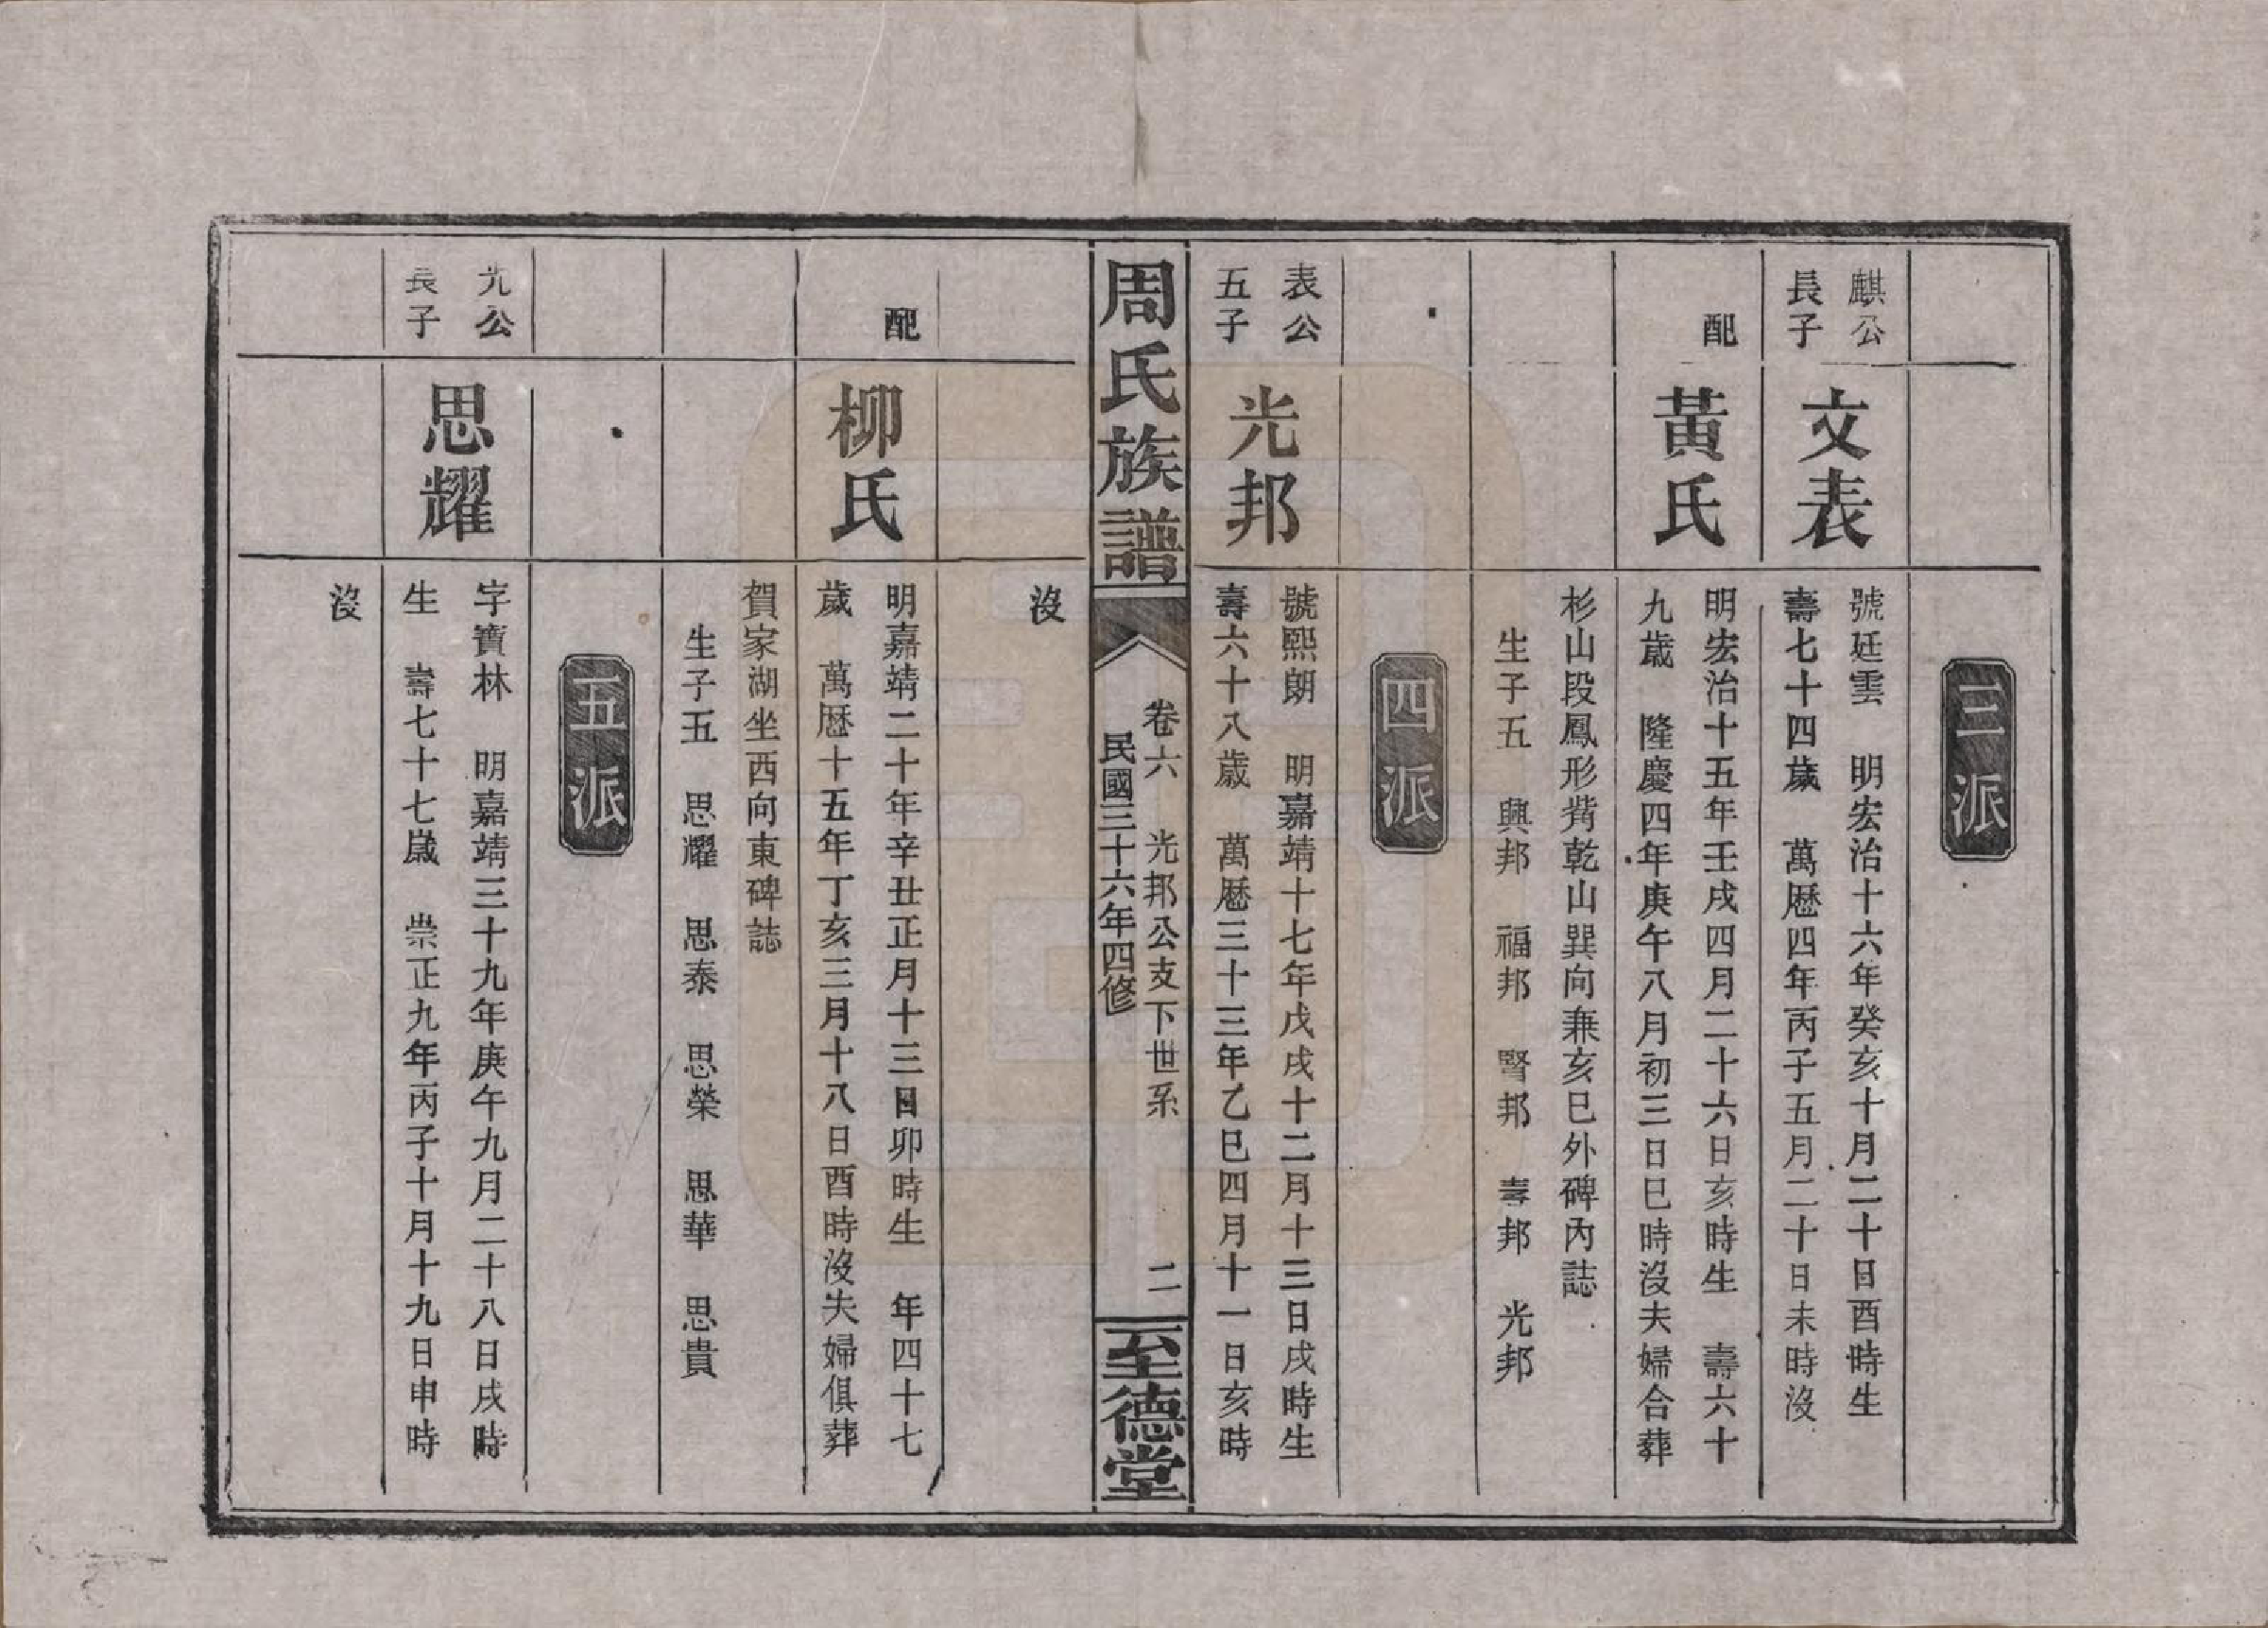 三派
麒公
長子
文表
號廷雲　明宏治十六年癸亥十月二十日酉時生
壽七十四歲　萬歷四年丙子五月二十日未時沒
配
黃氏
明宏治十五年壬戌四月二十六日亥時生　壽六十
九歲　隆慶四年庚午八月初三日巳時沒夫婦合葬
杉山段鳳形觜乾山巽向兼亥巳外碑內誌
生子五　興邦　福邦　賢邦　壽邦　光邦
四派
表公
五子
光邦
號熙朗　明嘉靖十七年戊戌十二月十三日戌時生
壽六十八歲　萬歷三十三年乙巳四月十一日亥時
周氏族譜
卷六　光邦公支下世系　二
民國三十六年四修
至德堂
沒
配
柳氏
明嘉靖二十年辛丑正月十三日卯時生　年四十七
歲　萬歷十五年丁亥三月十八日酉時沒夫婦俱葬
賀家湖坐西向東碑誌
生子五　思耀　思泰　思榮　思華　思貴
五派
光公
長子
思耀
字寶林　明嘉靖三十九年庚午九月二十八日戌時
生　壽七十七歲　崇正九年丙子十月十九日申時
沒